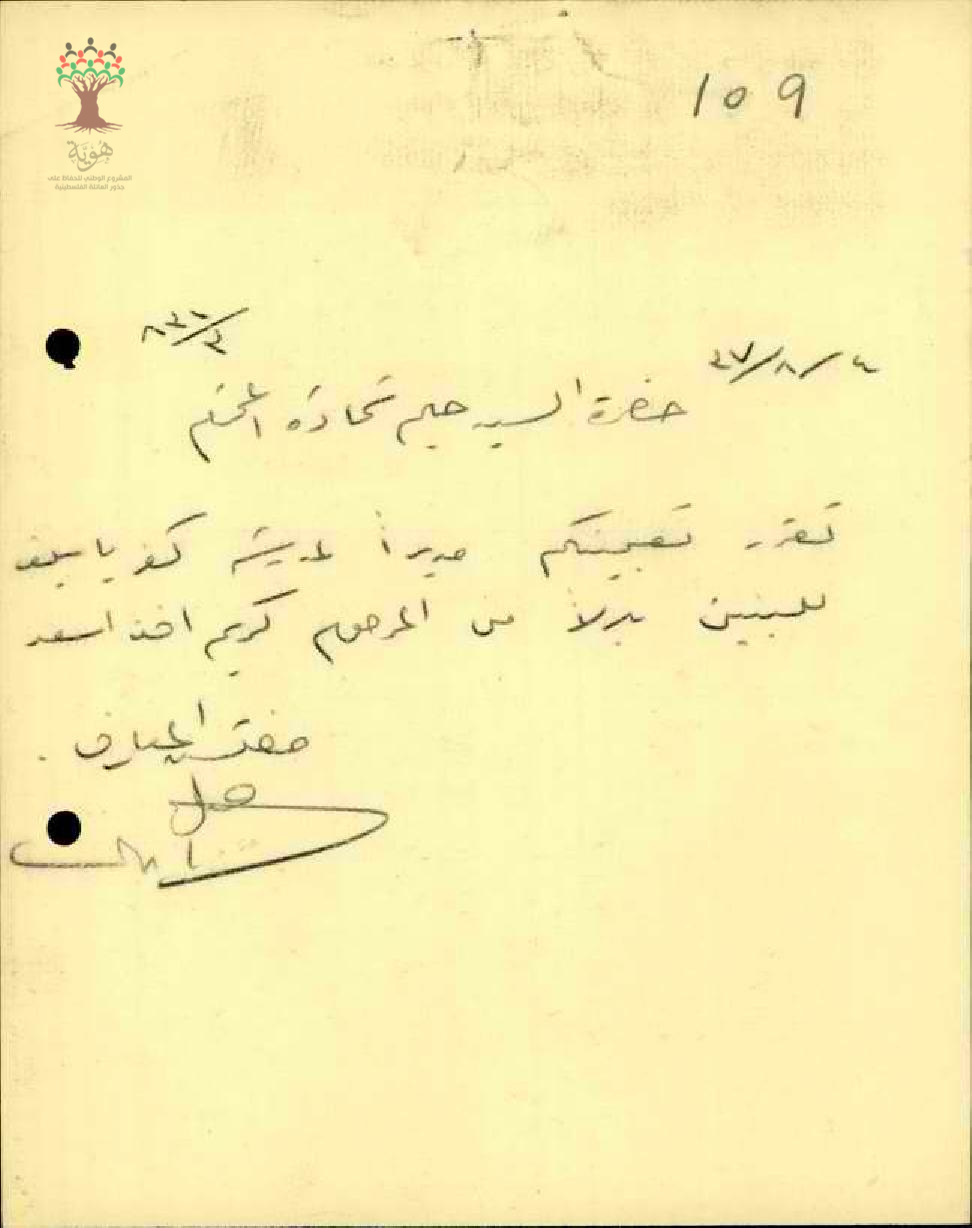 هوية
المشروع الوطني للحفاظ على
جذور العائلة الفلسطينية
109
٤ / ٨ / ٤٧
حضرة السيد حليم شحادة المحترم
تقرر تعيينكم مديراً لمدرسة كفر ياسيف
للبنين بدلاً من المرحوم كريم افندي اسعد
مفتش المعارف